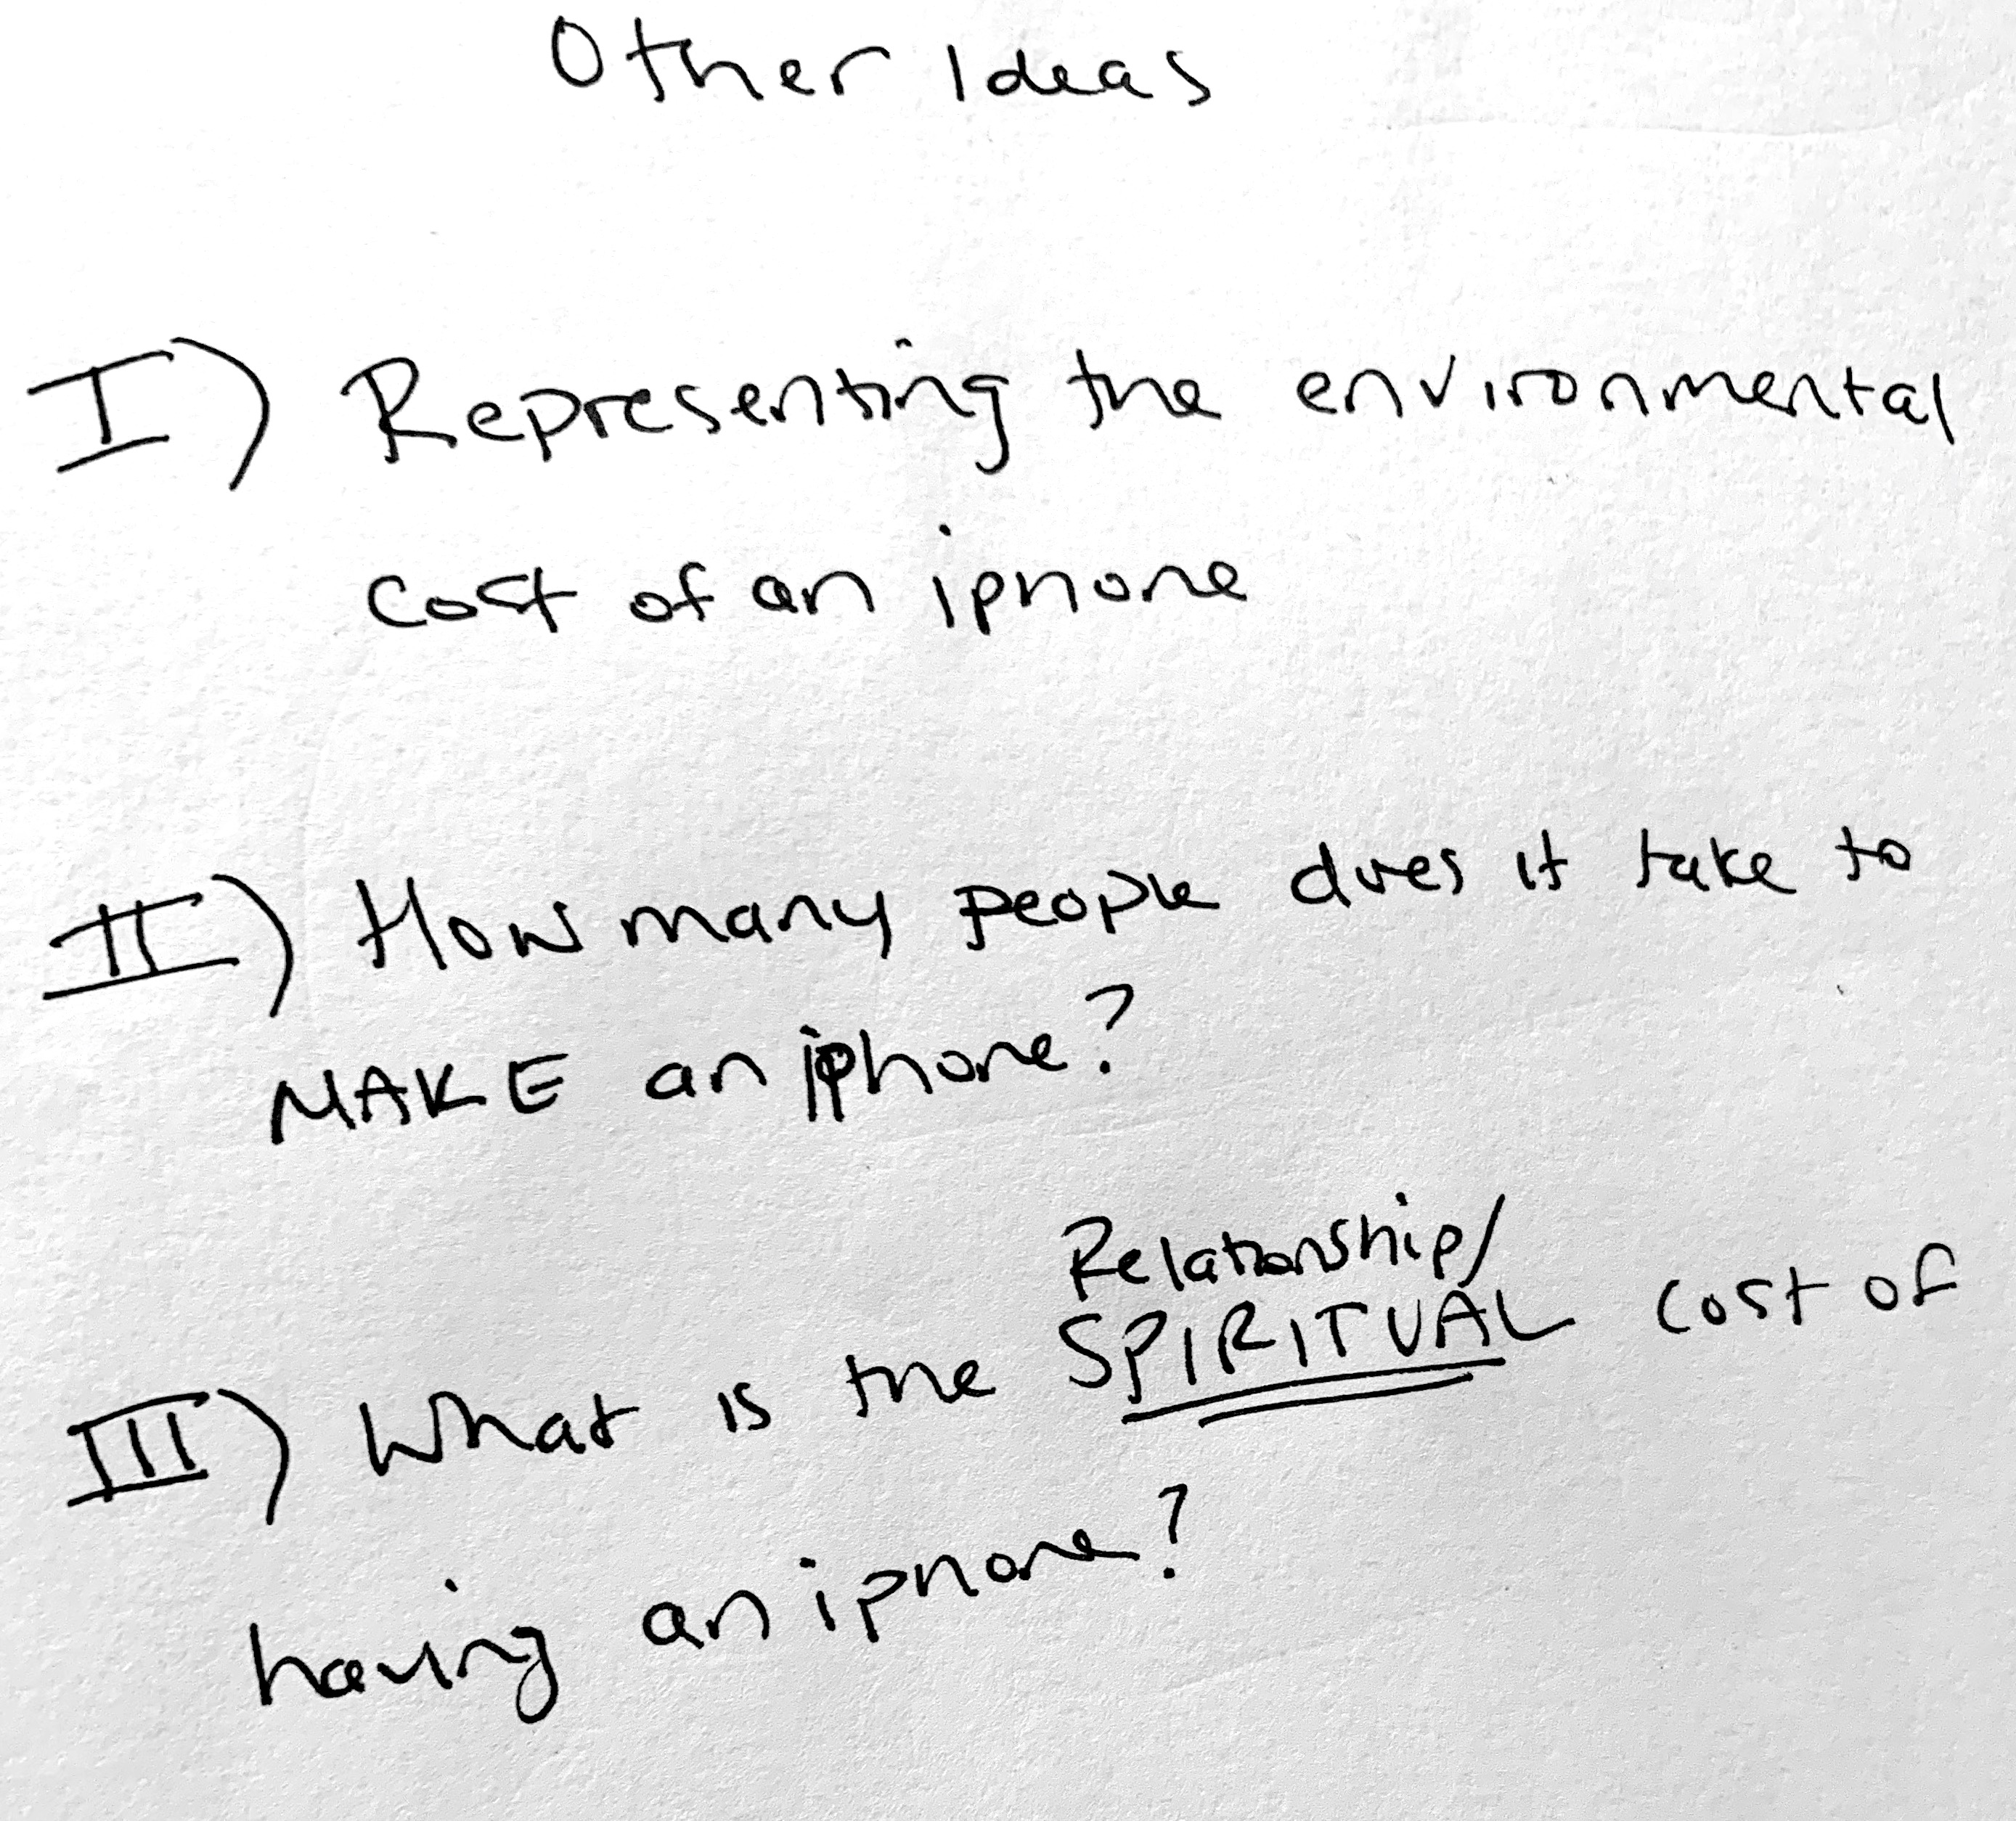 Other Ideas
I) Representing the environmental
cost of an iphone
II) How many people does it take to
MAKE an iphone?
Relationship/
III) What is the SPIRITUAL cost of
having an iphone?